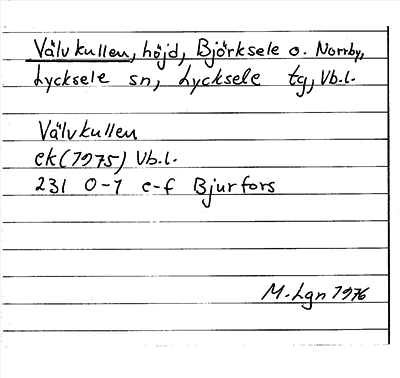 Välvkullen, höjd, Björksele o. Norrby,
Lycksele sn, Lycksele tg, Vb.l.
Välvkullen
ek(1975) Vb.l.
231 0-1 e-f Bjurfors
M.Lgn 1976